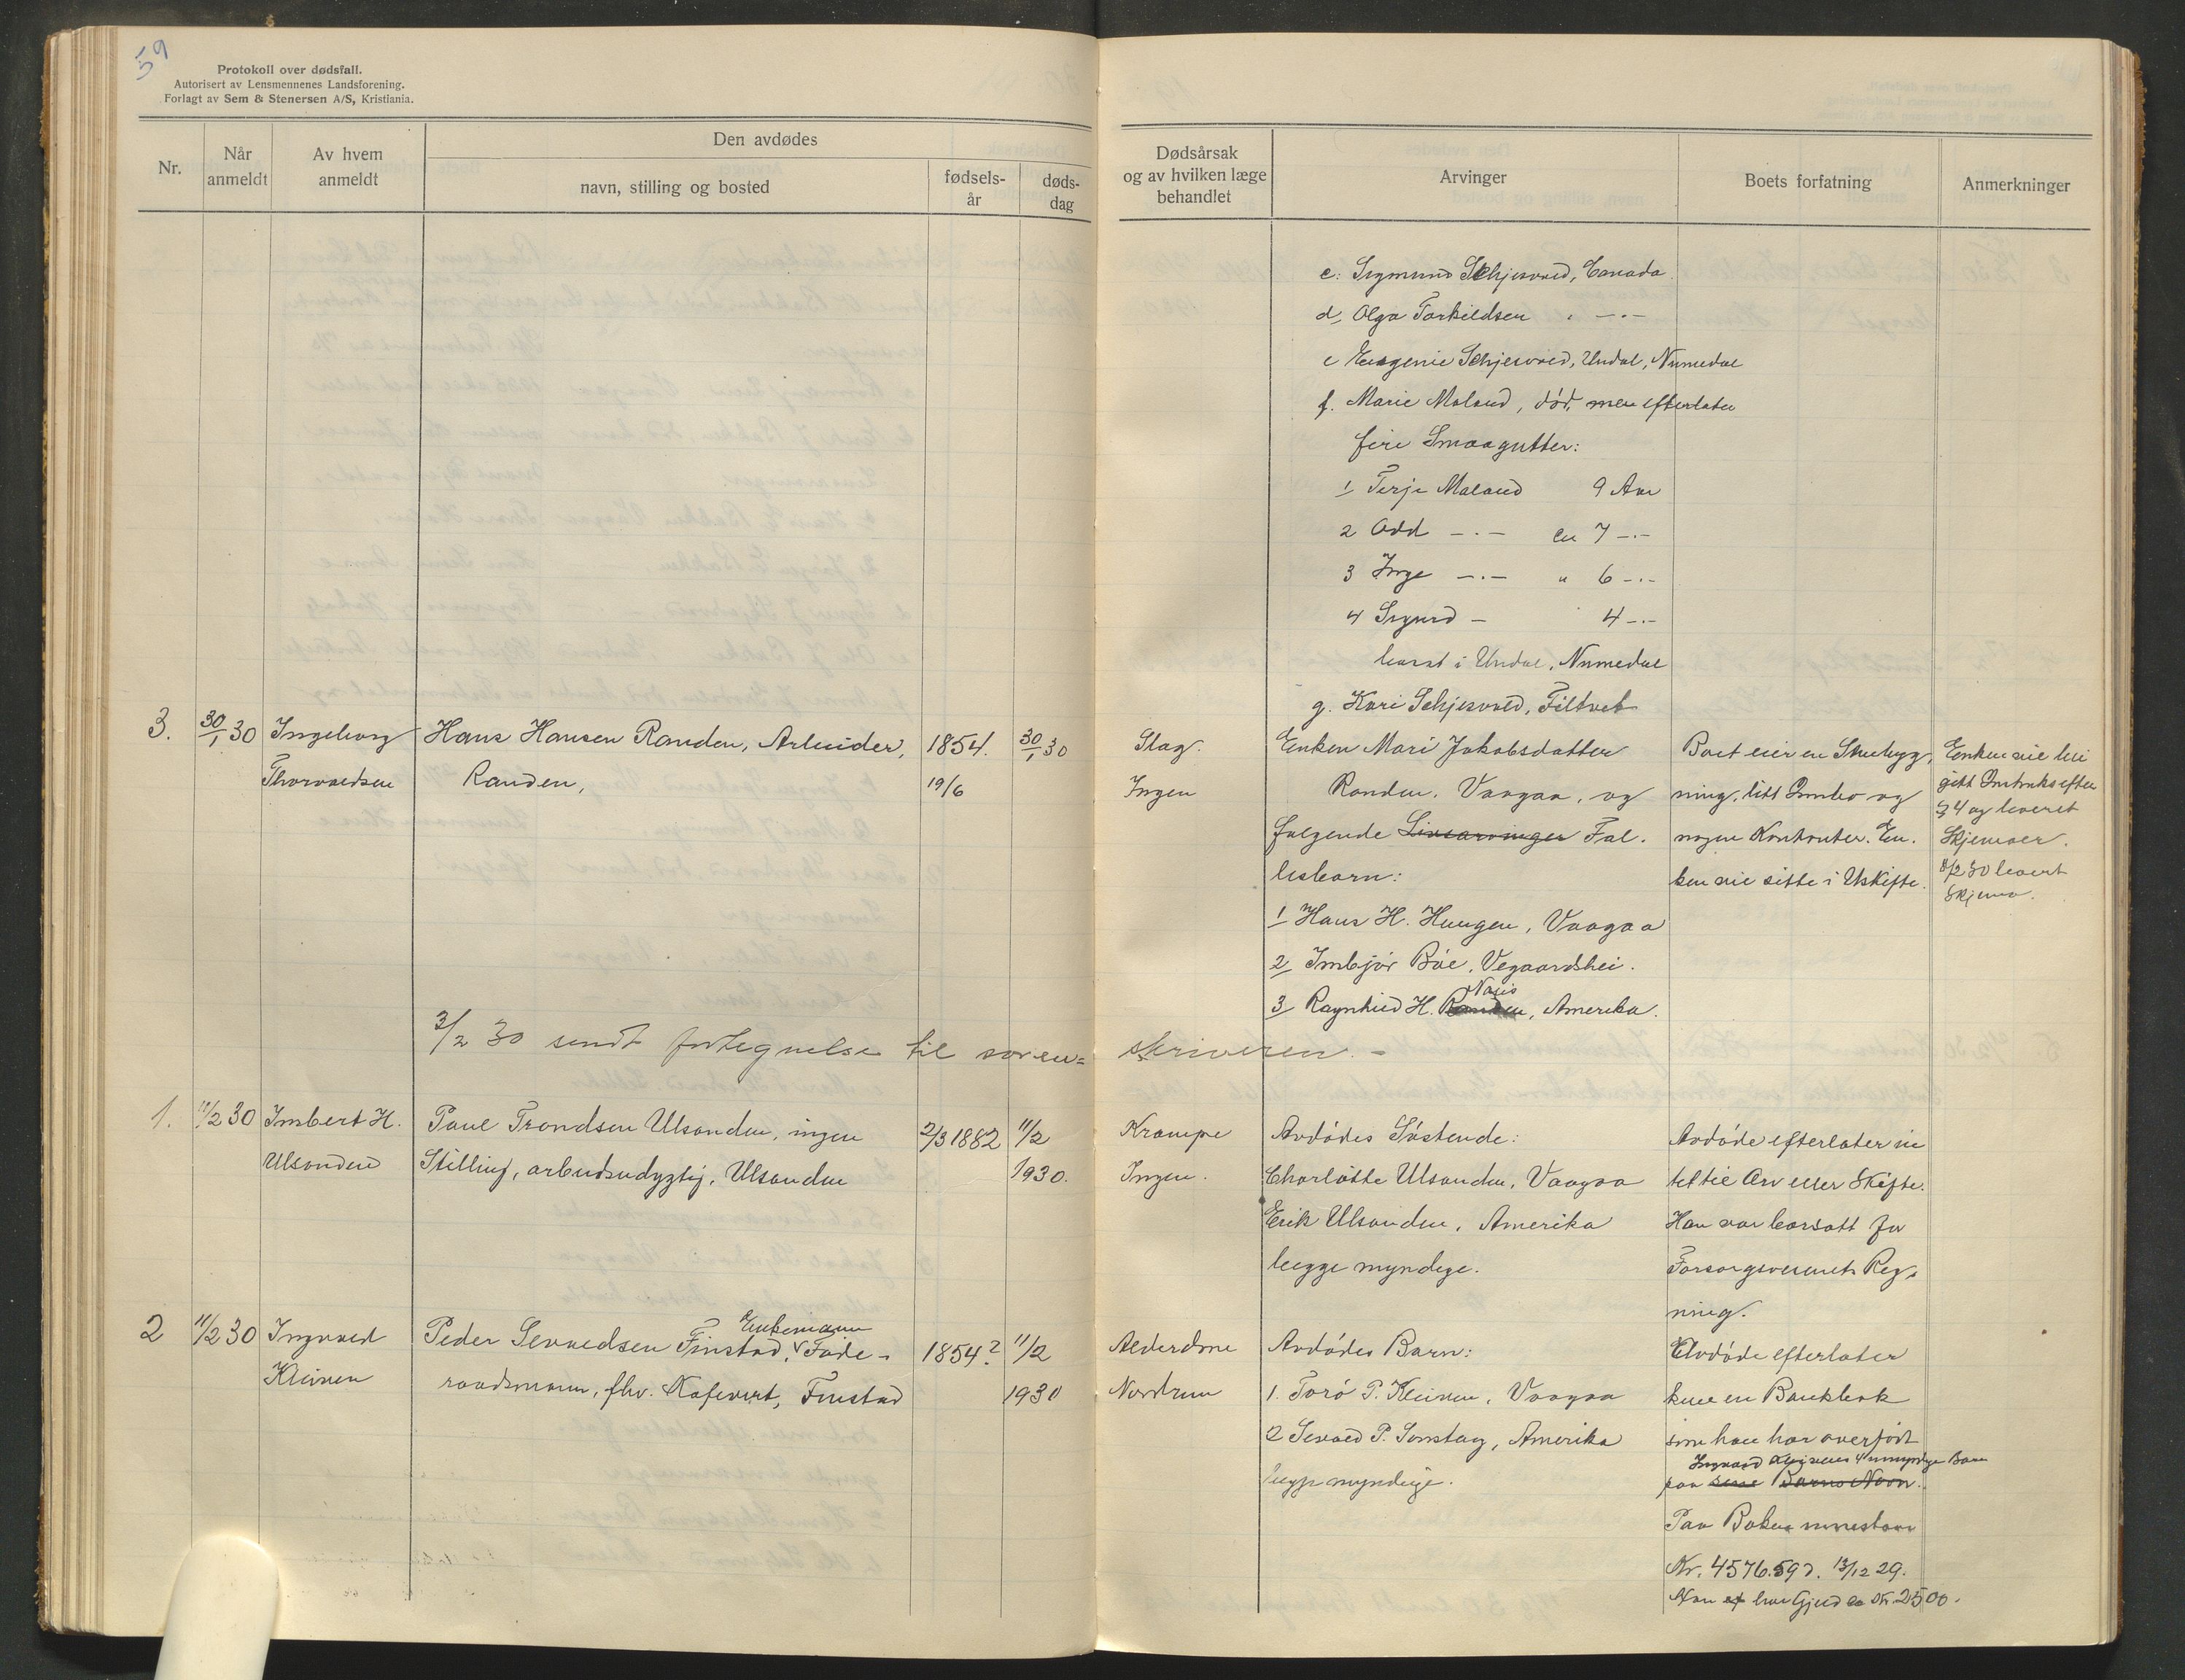 59
Protokoll over dødsfall.
Autorisert av Lensmennenes Landsforening.
Forlagt av Sem & Stenersen A/S, Kristiania.
Nr.
Når anmeldt
Av hvem anmeldt
Den avdødes
navn, stilling og bosted
fødsels-år
døds-dag
Dødsårsak og av hvilken læge behandlet
Arvinger
Boets forfatning
Anmerkninger
c: Sigmund Schjesvold, Canada.
d, Olga Torkildsen " -"-
e Eugenie Schjesvold, Undal, Numedal
f. Marie Moland, død, men efterlater
fire Smaagutter:
1 Terje Moland 9 Aar
2 Odd -"- 7 -"-
3 Inge -"- " 6 -"-
4 Sigurd - 4 -"-
bosat i Undal, Numedal
g. Kari Schjesvold, Filtvet
3.
30/1 30
Ingeborg
Thorvaldsen
Hans Hansen Randen, Arbeider,
Randen,
1854.
19/6
30/1 30
Slag.
Ingen
Enken Mari Jakobsdatter
Randen, Vaagaa, og
følgende Livsarvinger Fæl-
lesbarn:
1 Hans H. Haugen, Vaagaa
2 Imbjør Bøe, Vegaardshei.
3 Ragnhild H. Randen, Amerika.
Boet eier en Stuebyg-
ning, litt Innbo og
nogen Kontanter. En-
ken vil sitte i Uskifte.
Enken vil bli
gitt Innbruks efter
§ 4 og leveret
Skjemaer.
8/2 30 levert
Skjema.
3/2 30 sendt fortegnelse til soren=
skriveren. -
1.
11/2 30
Imbert H.
Ulsanden
Paul Trondsen Ulsanden, ingen
Stilling, arbeidsudygtig, Ulsanden
2/3 1882
11/2
1930.
Krampe
Ingen.
Avdødes Søskende:
Charlotte Ulsanden, Vaagaa
Erik Ulsanden, Amerika
begge myndige.
Avdøde efterlater in
tet til Arv eller Skifte.
Han var borsatt for
Forsorgsvesenets Reg-
ning.
2
11/2 30
Ingvald
Kleiven
Enkemann
Peder Sevaldsen Finstad, Føde-
raadsmann, fhv. Kafevert, Finstad
1854?
11/2
1930
Alderdom
Nordrum
Avdødes Barn:
1. Torø P. Kleiven, Vaagaa
2 Sevald P. Sonstag, Amerika
begge myndige.
Avdøde efterlater
kun en Bankbok
som han har overført
Ingvald Kleivens 4 umyndige Barn
paa sine Barns Navn.
Paa Boken innestaar
Kr. 4576.59 d. 13/12 29.
Han har Gjeld Kr. 2500.